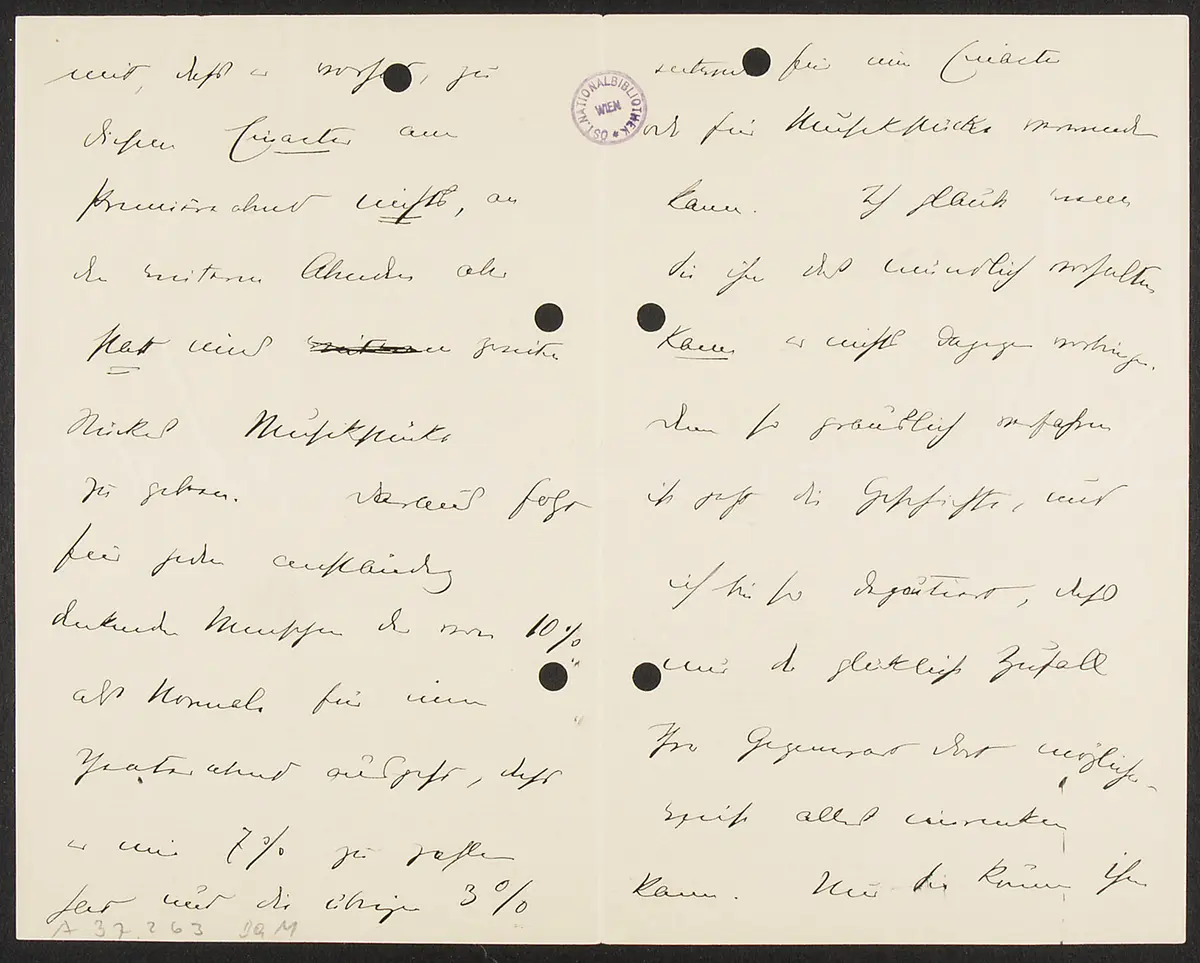 mit, daß er vorhat, zu
diesem Einacter am
Premièreabend nichts, an
den weiteren Abenden aber
statt eines weiteren zweiten
Stückes Musikstücke
zu geben. Daraus folgt
für jeden anständig
denkenden Menschen der von 10%
als Normale für einen
Theaterabend ausgeht, daß
er mir 7% zu zahlen
hat und die übrigen 3%
für einen Einacter
oder für Musikstücke verwenden
kann. Ich glaube wenn
Sie ihm das mündlich vorhalten
kann er nichts dagegen vorbringen.
Denn so gräußlich verfahren
ist jetzt die Geschichte, und
ich bin so degoutiert, daß
nur der glückliche Zufall
Ihrer Gegenwart dort möglicher-
weise alles einrenken
kann. Nur Sie können ihm
ÖST. NATIONALBIBLIOTHEK
WIEN
A 37.263 DaM